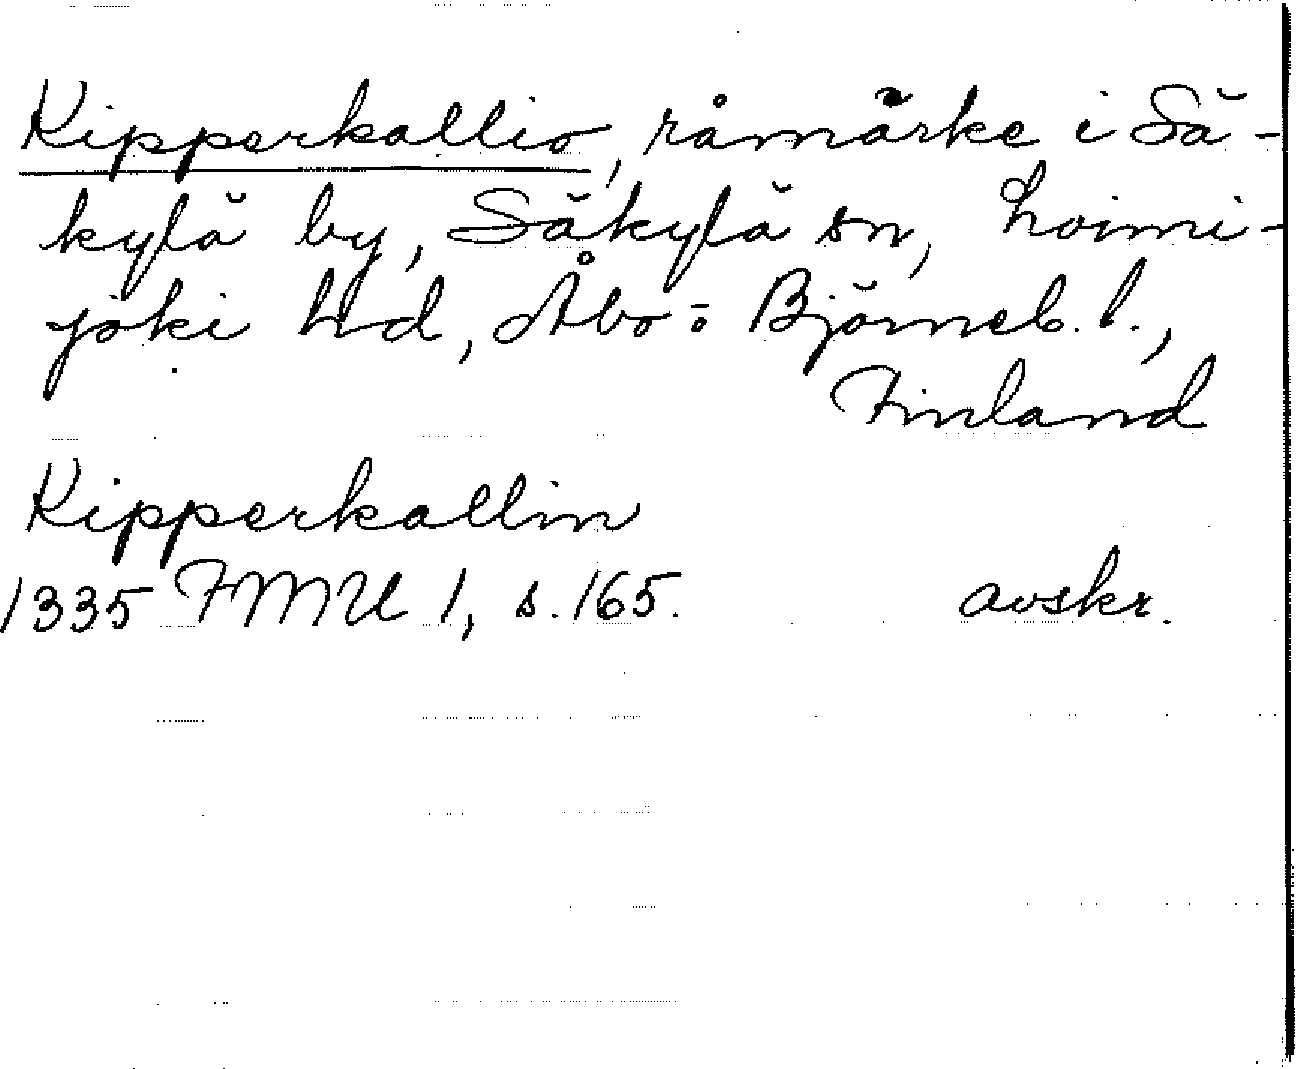 Kipperkallio, råmärke i Sä-
kylä by, Säkylä sn, Loimi-
joki hd, Åbo: Björneb. l.,
Finland
Kipperkallin
1335 FMU 1, s. 165. avskr.